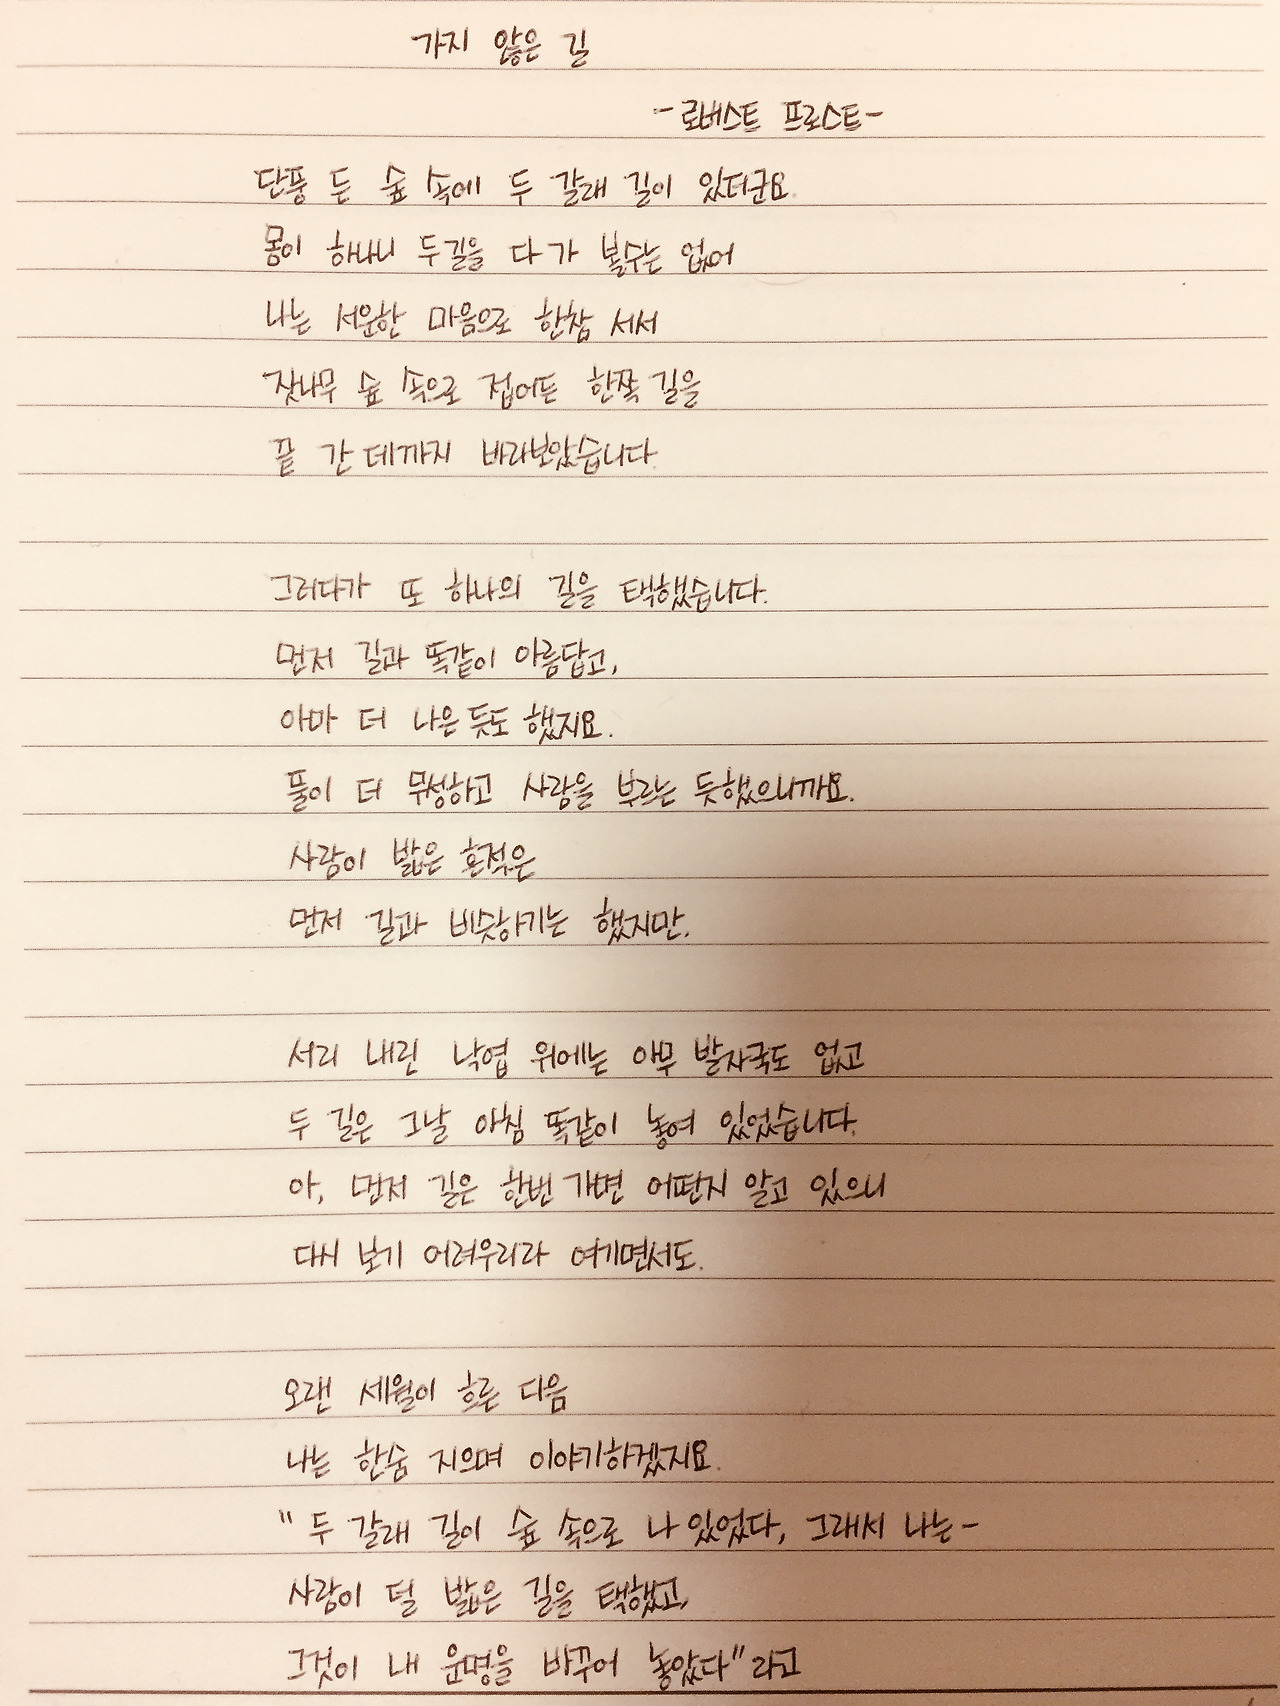 가지 않은 길
-로버스트 프로스트-
단풍 든 숲 속에 두 갈래 길이 있더군요.
몸이 하나니 두길을 다 가 볼수는 없어
나는 서운한 마음으로 한참 서서
잣나무 숲 속으로 접어든 한쪽 길을
끝 간 데까지 바라보았습니다.
그러다가 또 하나의 길을 택했습니다.
먼저 길과 똑같이 아름답고,
아마 더 나은 듯도 했지요.
풀이 더 무성하고 사람을 부르는 듯했으니까요.
사람이 밟은 흔적은
먼저 길과 비슷하기는 했지만.
서리 내린 낙엽 위에는 아무 발자국도 없고
두 길은 그날 아침 똑같이 놓여 있었습니다.
아, 먼저 길은 한번 가면 어떤지 알고 있으니
다시 보기 어려우리라 여기면서도.
오랜 세월이 흐른 다음
나는 한숨 지으며 이야기하겠지요.
"두 갈래 길이 숲 속으로 나 있었다, 그래서 나는-
사람이 덜 밟은 길을 택했고,
그것이 내 운명을 바꾸어 놓았다"라고